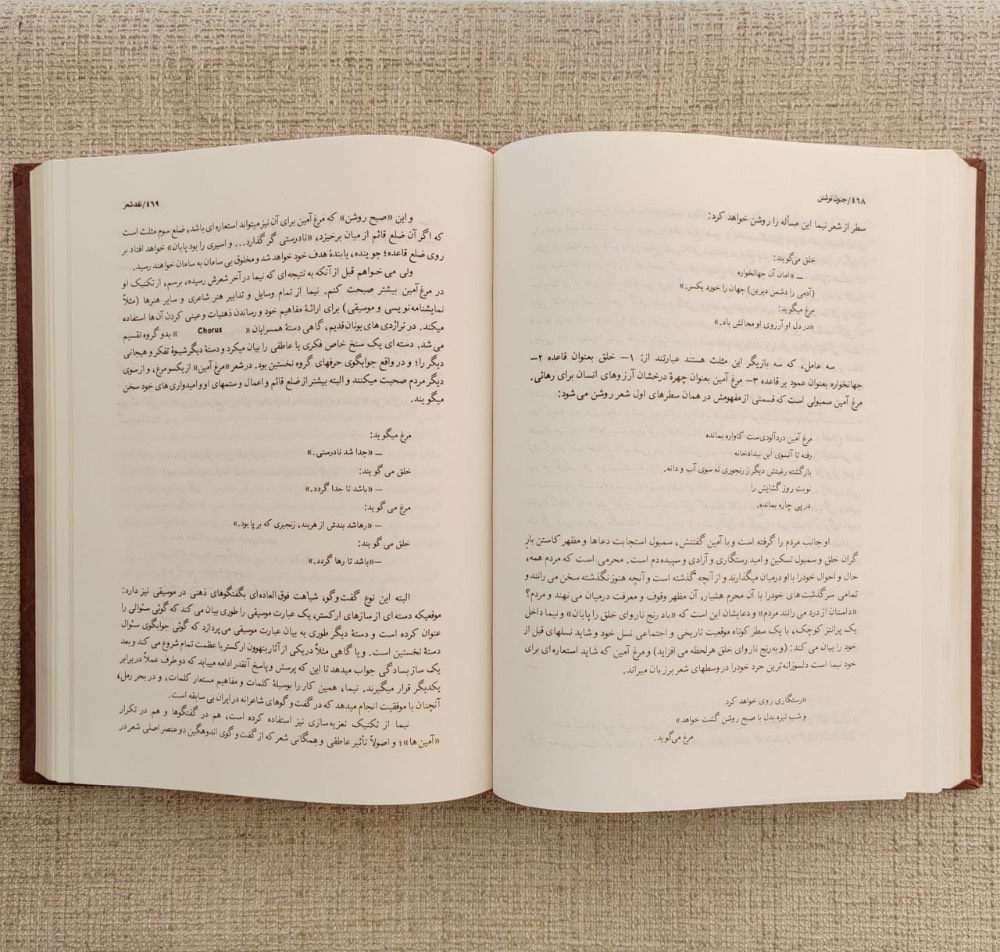 ۴۶۸/جنون نوشتن
سطر از شعر نیما این مسأله را روشن خواهد کرد:
خلق می‌گویند:
— «امان آن جهانخواره
(آدمی را دشمن دیرین) جهان را خورد یکسر.»
مرغ میگوید:
«در دل او آرزوی او محالش باد.»
سه عامل، که سه بازیگر این مثلث هستند عبارتند از: ۱— خلق بعنوان قاعده ۲—
جهانخواره بعنوان عمود بر قاعده ۳— مرغ آمین بعنوان چهرهٔ درخشان آرزوهای انسان برای رهائی.
مرغ آمین صمبولی است که قسمتی از مفهومش در همان سطرهای اول شعر روشن می‌شود:
مرغ آمین دردآلودی‌ست کاواره بمانده
رفته تا آنسوی این بیدادخانه
بازگشته رغبتش دیگر ز رنجوری نه سوی آب و دانه.
نوبت روز گشایش را
در پی چاره بمانده.
او جانب مردم را گرفته است و با آمین گفتنش، سمبول استجابت دعاها و مظهر کاستن بار
گران خلق و سمبول تسکین و امید رستگاری و آزادی و سپیده‌دم است. محرمی است که مردم همه،
حال و احوال خودرا با او درمیان میگذارند و از آنچه گذشته است و آنچه هنوز نگذشته سخن می رانند و
تمامی سرگذشت‌های خودرا با آن محرم هشیار، آن مظهر وقوف و معرفت درمیان می نهند و مردم؟
«داستان از درد می رانند مردم» و دعایشان این است که «باد رنج ناروای خلق را پایان» و نیما داخل
یک پرانتز کوچک، با یک سطر کوتاه موقعیت تاریخی و اجتماعی نسل خود و شاید نسلهای قبل از
خود را بیان می کند: (و به رنج ناروای خلق هرلحظه می افزاید) و مرغ آمین که شاید استعاره ای برای
خود نیما است دلسوزانه ترین حرد خودرا در وسطهای شعر بر زبان میراند.
«رستگاری روی خواهد کرد
و شب تیره بدل با صبح روشن گشت خواهد»
مرغ می‌گوید.
۴۶۹/نقد شعر
و این «صبح روشن» که مرغ آمین برای آن نیز میتواند استعاره ای باشد، ضلع سوم مثلث است
که اگر آن ضلع قائم از میان برخیزد، «نادرستی گر گذارد... و اسیری را بود پایان» خواهد افتاد بر
روی ضلع قاعده؛ جوینده، یابندهٔ هدف خود خواهد شد و مخلوق بی سامان به سامان خواهند رسید.
ولی می خواهم قبل از آنکه به نتیجه‌ای که نیما در آخر شعرش رسیده، برسم، از تکنیک او
در مرغ آمین بیشتر صحبت کنم. نیما از تمام وسایل و تدابیر هنر شاعری و سایر هنرها (مثلاً
نمایشنامه‌نویسی و موسیقی) برای ارائهٔ مفاهیم خود و رساندن ذهنیات و عینی کردن آن‌ها استفاده
میکند. در تراژدی های یونان قدیم، گاهی دستهٔ همسرایان « Chorus » بدو گروه تقسیم
می شد. دسته ای یک سنخ خاص فکری یا عاطفی را بیان میکرد و دستهٔ دیگر شیوهٔ تفکر و هیجانی
دیگر را؛ و در واقع جوابگوی حرفهای گروه نخستین بود. در شعر «مرغ آمین» از یکسو مرغ، و از سوی
دیگر مردم صحبت میکنند و البته بیشتر از ضلع قائم و اعمال و ستمهای او و امیدواری های خود سخن
میگویند.
مرغ میگوید:
— «جدا شد نادرستی.»
خلق می گویند:
— «باشد تا جدا گردد.»
مرغ می گوید:
— «رها شد بندش از هر بند، زنجیری که بر پا بود.»
خلق می گویند:
—«باشد تا رها گردد.»
البته این نوع گفت‌وگو، شباهت فوق‌العاده‌ای بگفتگوهای ذهنی در موسیقی نیز دارد:
موقعیکه دسته ای از سازهای ارکستر، یک عبارت موسیقی را طوری بیان می کند که گوئی سئوالی را
عنوان کرده است و دستهٔ دیگر طوری به بیان عبارت موسیقی می‌پردازد که گوئی جوابگوی سئوال
دستهٔ نخستین است. و یا گاهی مثلاً در یکی از آثار بتهوون ارکستر با عظمت تمام شروع می کند و بعد
یک ساز بسادگی جواب میدهد تا این که پرسش و پاسخ آنقدر ادامه مییابد که دو طرف عملاً در برابر
یکدیگر قرار میگیرند. نیما، همین کار را بوسیلهٔ کلمات و مفاهیم مستعار کلمات، و در بحر رمل،
آنچنان با موفقیت انجام میدهد که در گفت و گوهای شاعرانه در ایران بی سابقه است.
نیما از تکنیک تعزیه‌سازی نیز استفاده کرده است، هم در گفتگوها و هم در تکرار
«آمین ها»؛ و اصولاً تأثیر عاطفی و همگانی شعر که از گفت و گوی اندوهگین دو عنصر اصلی شعر در